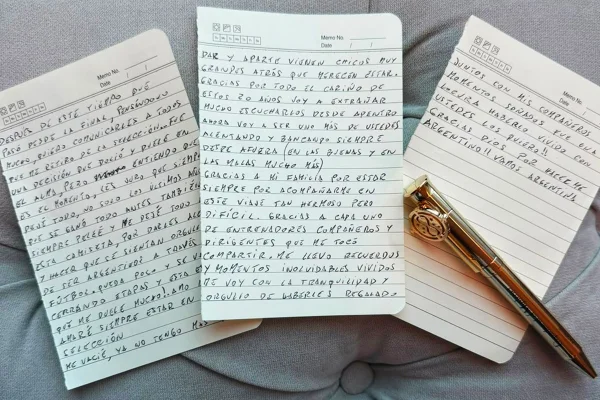 Memo No.
Date
DESPUES DE ESTE TIEMPO QUE
PASO DESDE LA FINAL, PENSÁNDOLO
MUCHO, QUIERO COMUNICARLES A TODOS
QUE ME RETIRO DE LA SELECCIÓN. FUE
UNA DECISIÓN QUE DOLIÓ Y DUELE EN
EL ALMA, PERO ENTIENDO QUE
ES EL MOMENTO. LES JURO QUE SIEMPRE
DEJÉ TODO, NO SOLO LOS ÚLTIMOS AÑOS
QUE SE GANÓ TODO ANTES TAMBIÉN
SIEMPRE PELEÉ Y ME DEJÉ TODO
ESTA CAMISETA, POR DARLES
Y HACER QUE SE SIENTAN ORGULL
DE SER ARGENTINOS A TRAVÉS
FÚTBOL. QUEDA POCO Y SE V
CERRANDO ETAPAS Y ESTA
QUE ME DUELE MUCHO! AMO
AMARÉ SIEMPRE ESTAR EN
SELECCIÓN.
ME VACIÉ, YA NO TENGO MÁS
Memo No.
Date / /
DAR Y APARTE VIENEN CHICOS MUY
GRANDES ATRÁS QUE MERECEN ESTAR.
GRACIAS POR TODO EL CARIÑO DE
ESTOS 20 AÑOS VOY A EXTRAÑAR
MUCHO ESCUCHARLOS DESDE ADENTRO.
AHORA VOY A SER UNO MÁS DE USTEDES
ALENTANDO Y BANCANDO SIEMPRE
DESDE AFUERA (EN LAS BUENAS Y EN
LAS MALAS MUCHO MÁS)
GRACIAS A MI FAMILIA POR ESTAR
SIEMPRE POR ACOMPAÑARME EN
ESTE VIAJE TAN HERMOSO PERO
DIFÍCIL. GRACIAS A CADA UNO
DE ENTRENADORES COMPAÑEROS Y
DIRIGENTES QUE ME TOCÓ
COMPARTIR. ME LLEVO RECUERDOS
Y MOMENTOS INOLVIDABLES VIVIDOS
ME VOY CON LA TRANQUILIDAD Y
ORGULLO DE HABERLES REGALADO
Memo No.
Date / /
JUNTOS CON MIS COMPAÑEROS
MOMENTOS SOÑADOS QUE FUE
LOCURA HABERLO VIVIDO CON
USTEDES LOS QUIERO!!
GRACIAS DIOS POR HACERME
ARGENTINO!! VAMOS ARGENTINA